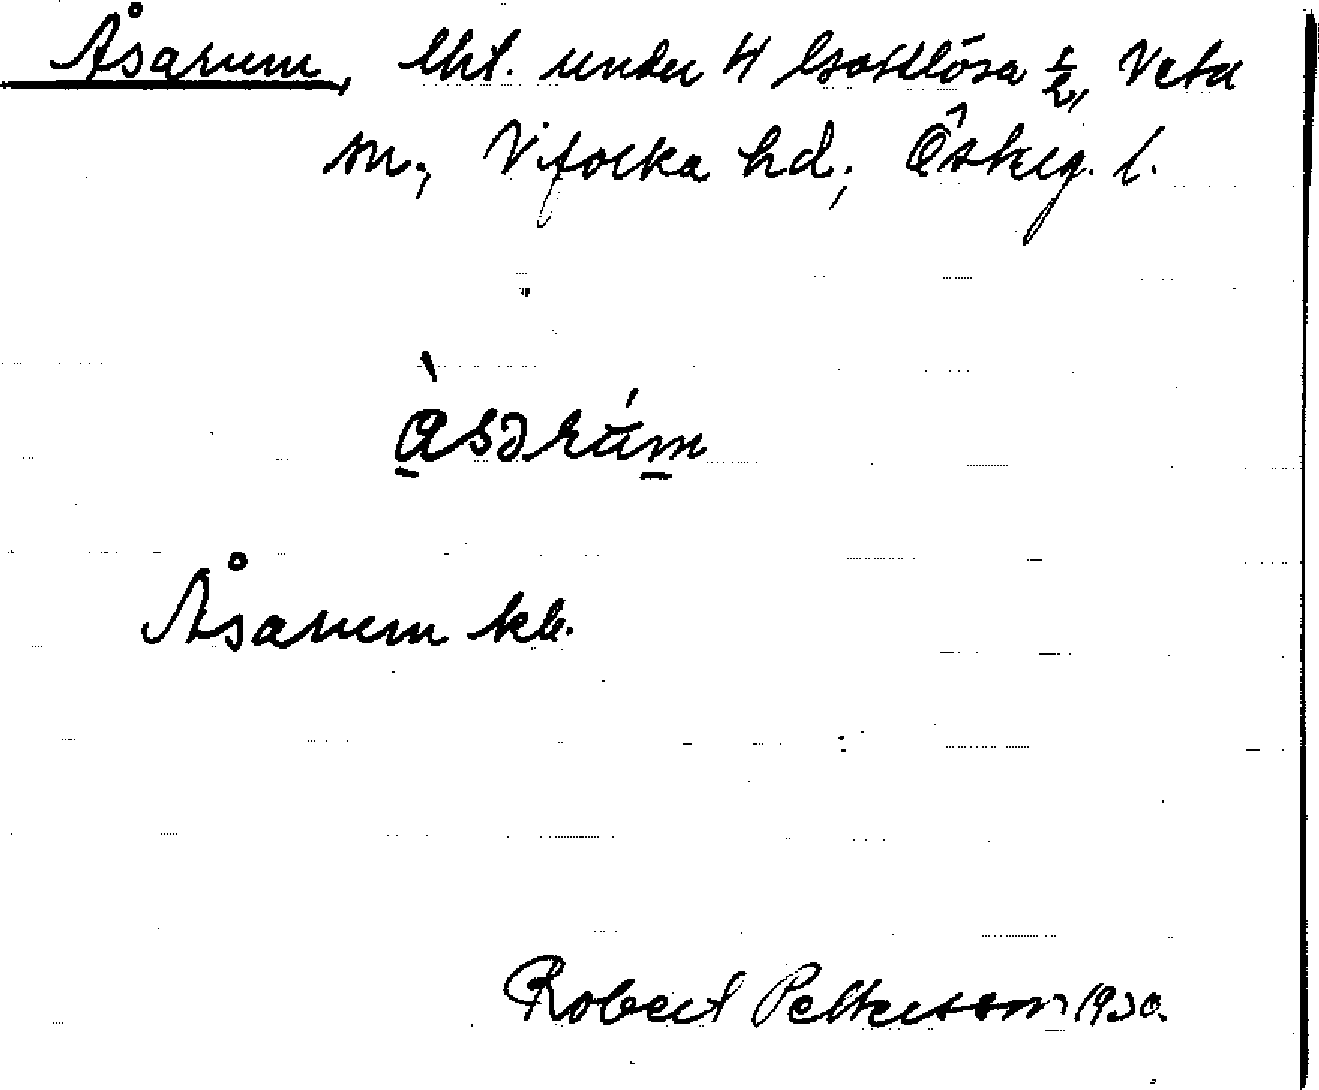 Åsarum, lht. under 4 Isoktlösa ½, Veta
sn., Vifolka hd., Östeg. l.
Åsarum kb.
Robert Pettersson 1930.